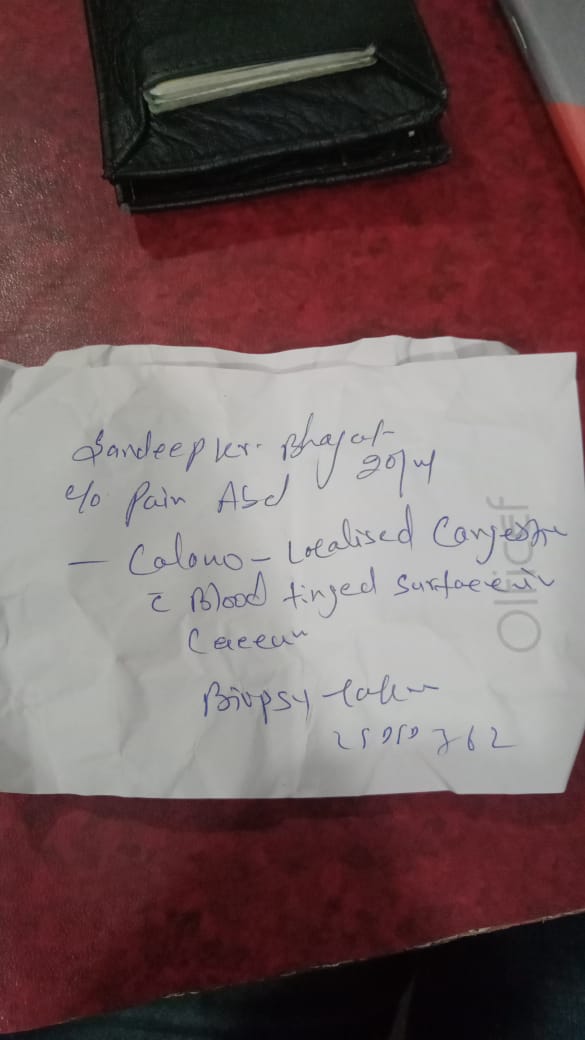 Sandeep kr. Bhagat
c/o Pain Abd 20/M
— Colono - Localised Congestion
c̄ Blood tinged surface in
Caecum
Biopsy taken
762
Office